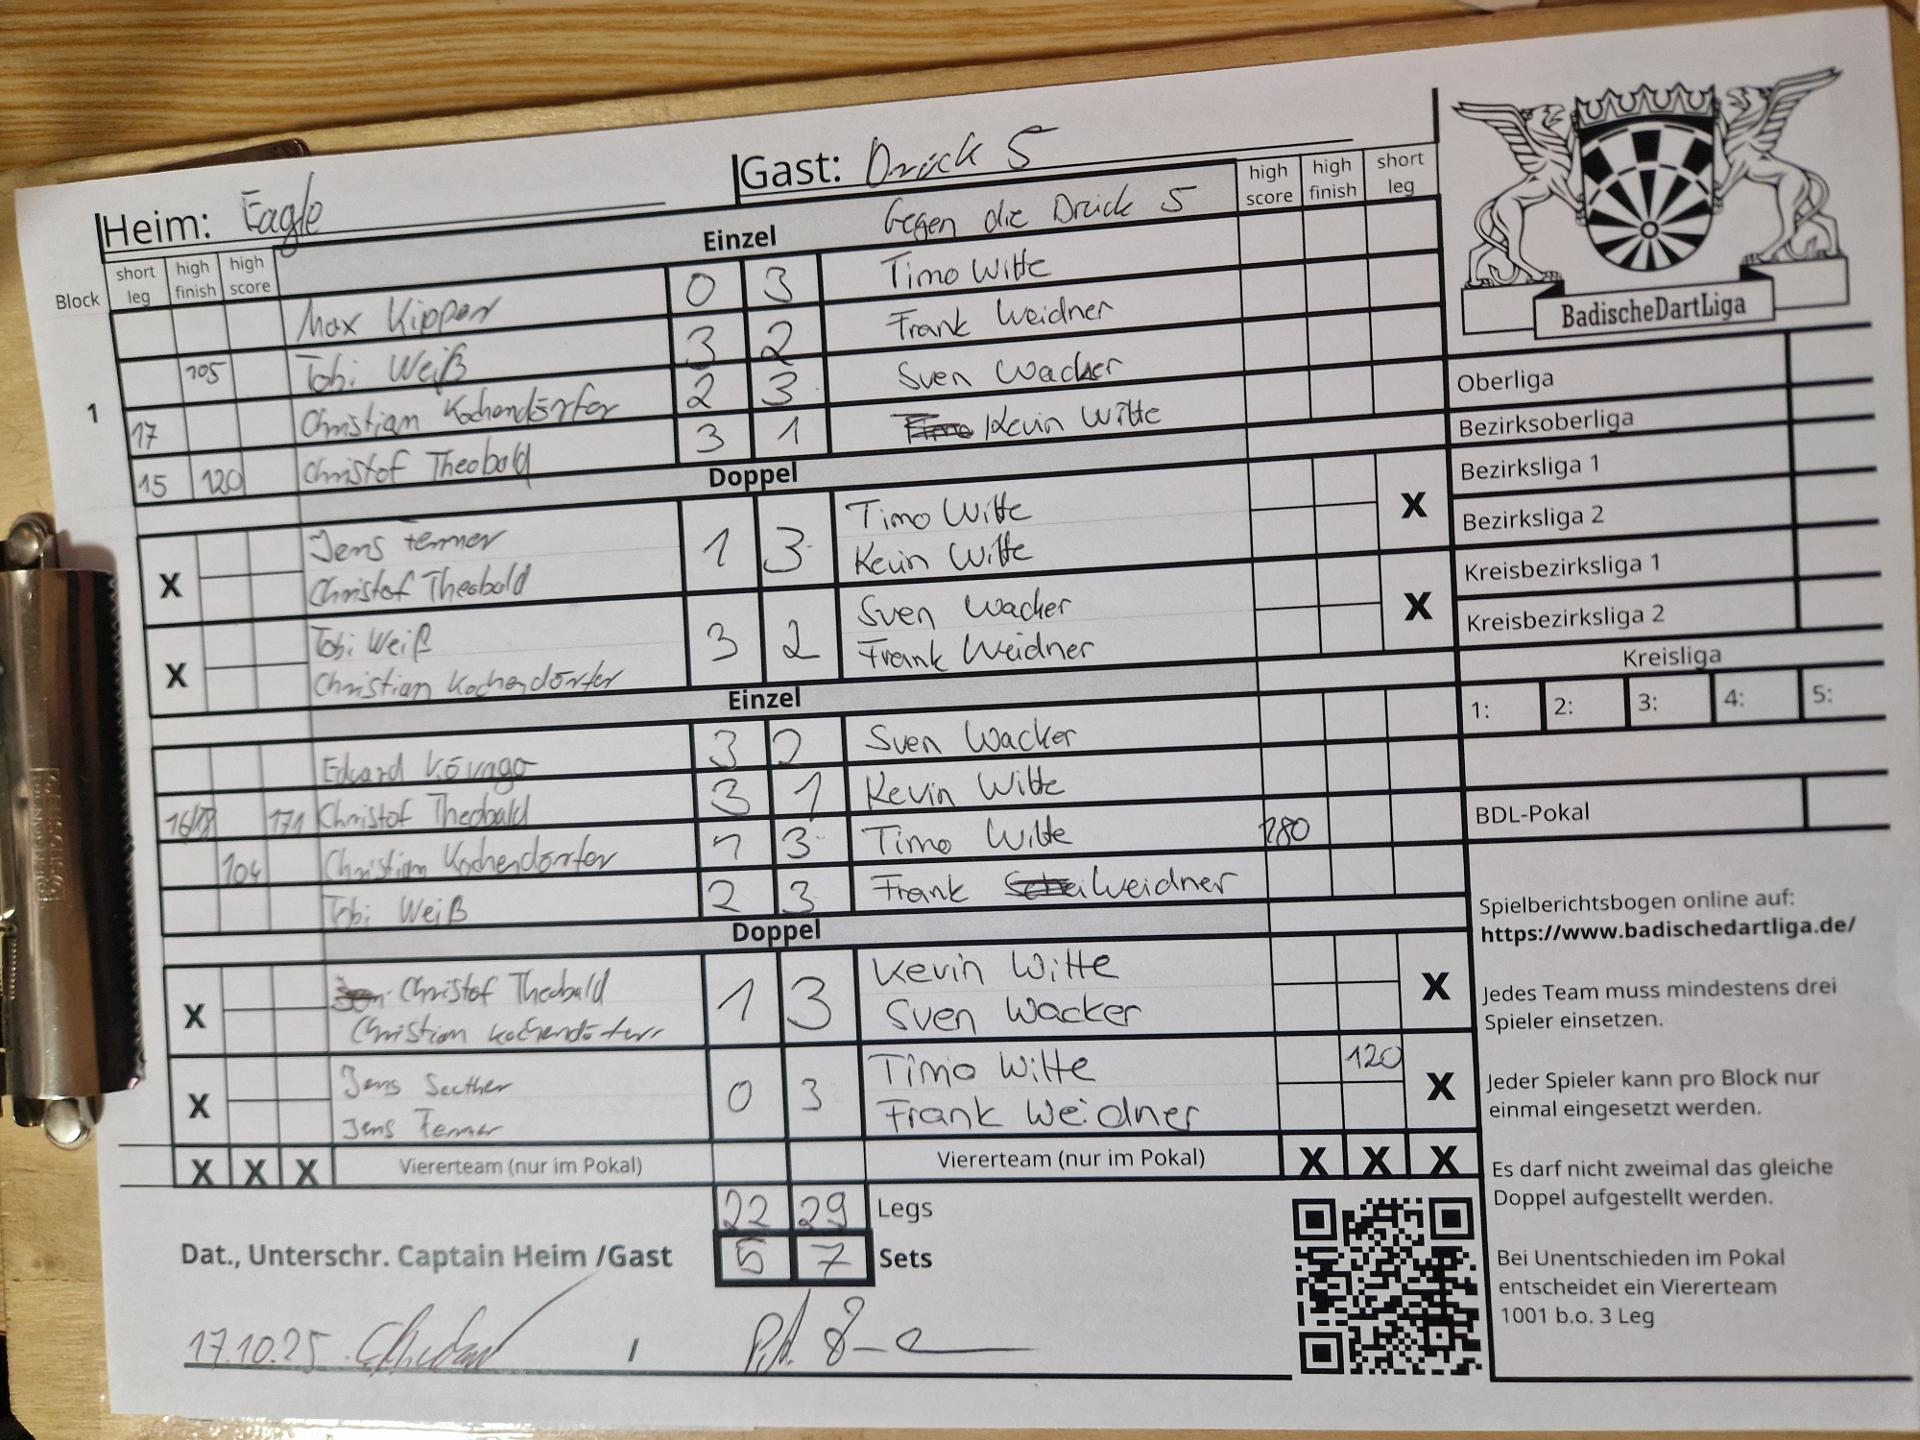 Heim: Eagle
Gast: Drück 5
Block
short leg high finish high score
Einzel
Gegen die Drück 5
high score high finish short leg
Max Kipper 0 3 Timo Witte
105 Tobi Weiß 3 2 Frank Weidner
1
17 Christian Kochendörfer 2 3 Sven Wacker
15 120 Christof Theobald 3 1 Kevin Witte
Doppel
X Jens Femmer 1 3 Timo Witte X
Christof Theobald Kevin Witte
X Tobi Weiß 3 2 Sven Wacker X
Christian Kochendörfer Frank Weidner
Einzel
Eduard Kövago 3 2 Sven Wacker
16/18 171 Christof Theobald 3 1 Kevin Witte
104 Christian Kochendörfer 1 3 Timo Witte 180
Tobi Weiß 2 3 Frank Weidner
Doppel
X Christof Theobald 1 3 Kevin Witte X
Christian Kochendörfer Sven Wacker
X Jens 0 3 Timo Witte 120 X
Jens Femmer Frank Weidner
X X X Viererteam (nur im Pokal) Viererteam (nur im Pokal) X X X
22 29 Legs
5 7 Sets
Dat., Unterschr. Captain Heim /Gast
17.10.25 /
BadischeDartLiga
Oberliga
Bezirksoberliga
Bezirksliga 1
Bezirksliga 2
Kreisbezirksliga 1
Kreisbezirksliga 2
Kreisliga
1: 2: 3: 4: 5:
BDL-Pokal
Spielberichtsbogen online auf:
https://www.badischedartliga.de/
Jedes Team muss mindestens drei
Spieler einsetzen.
Jeder Spieler kann pro Block nur
einmal eingesetzt werden.
Es darf nicht zweimal das gleiche
Doppel aufgestellt werden.
Bei Unentschieden im Pokal
entscheidet ein Viererteam
1001 b.o. 3 Leg